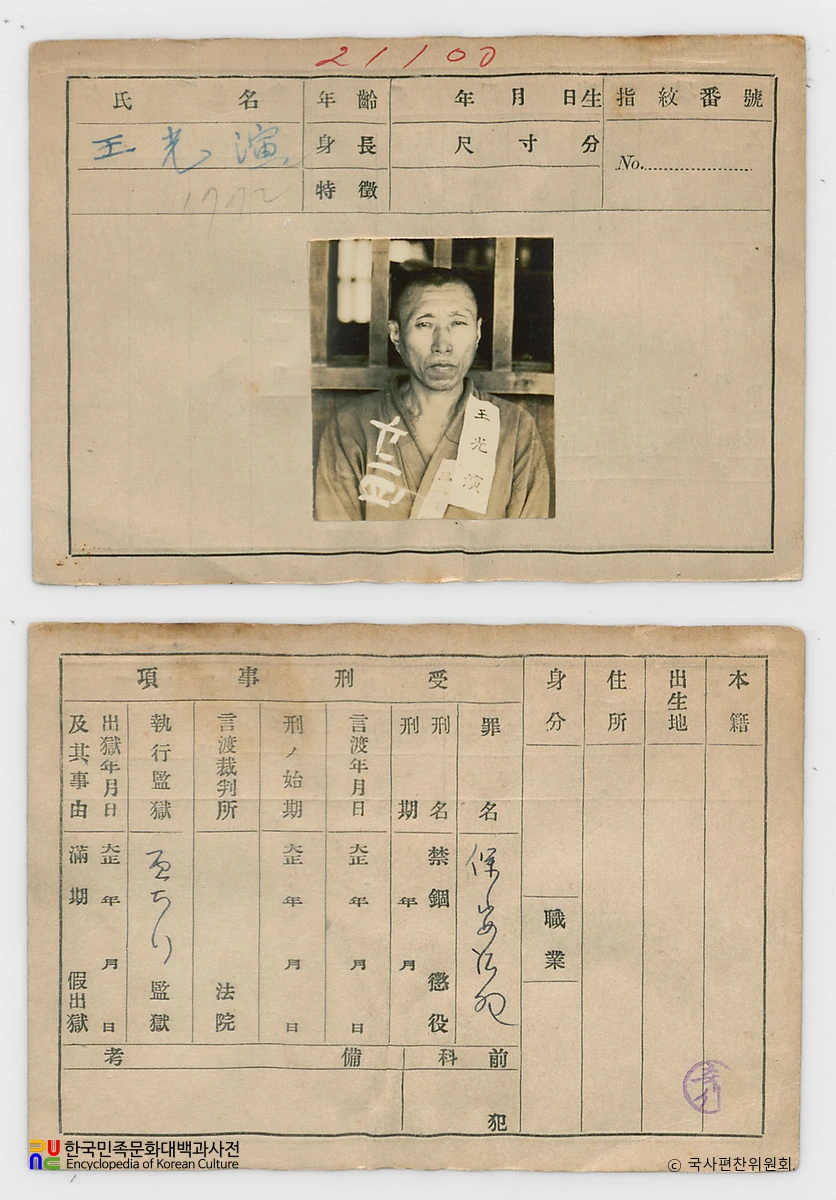 21100
氏名 年齡 年月日生 指紋番號
王光演 身長 尺寸分 No.
1772 特徵
王光演
本籍
出生地
住所
身分
職業
受刑事項
罪名 保安法犯
刑名 禁錮 懲役
刑期 年月
言渡年月日 大正年月日
刑ノ始期 大正年月日
言渡裁判所 法院
執行監獄 監獄
出獄年月日 大正年月日
及其事由 滿期 假出獄
前科 犯
備考
한국민족문화대백과사전
Encyclopedia of Korean Culture
© 국사편찬위원회